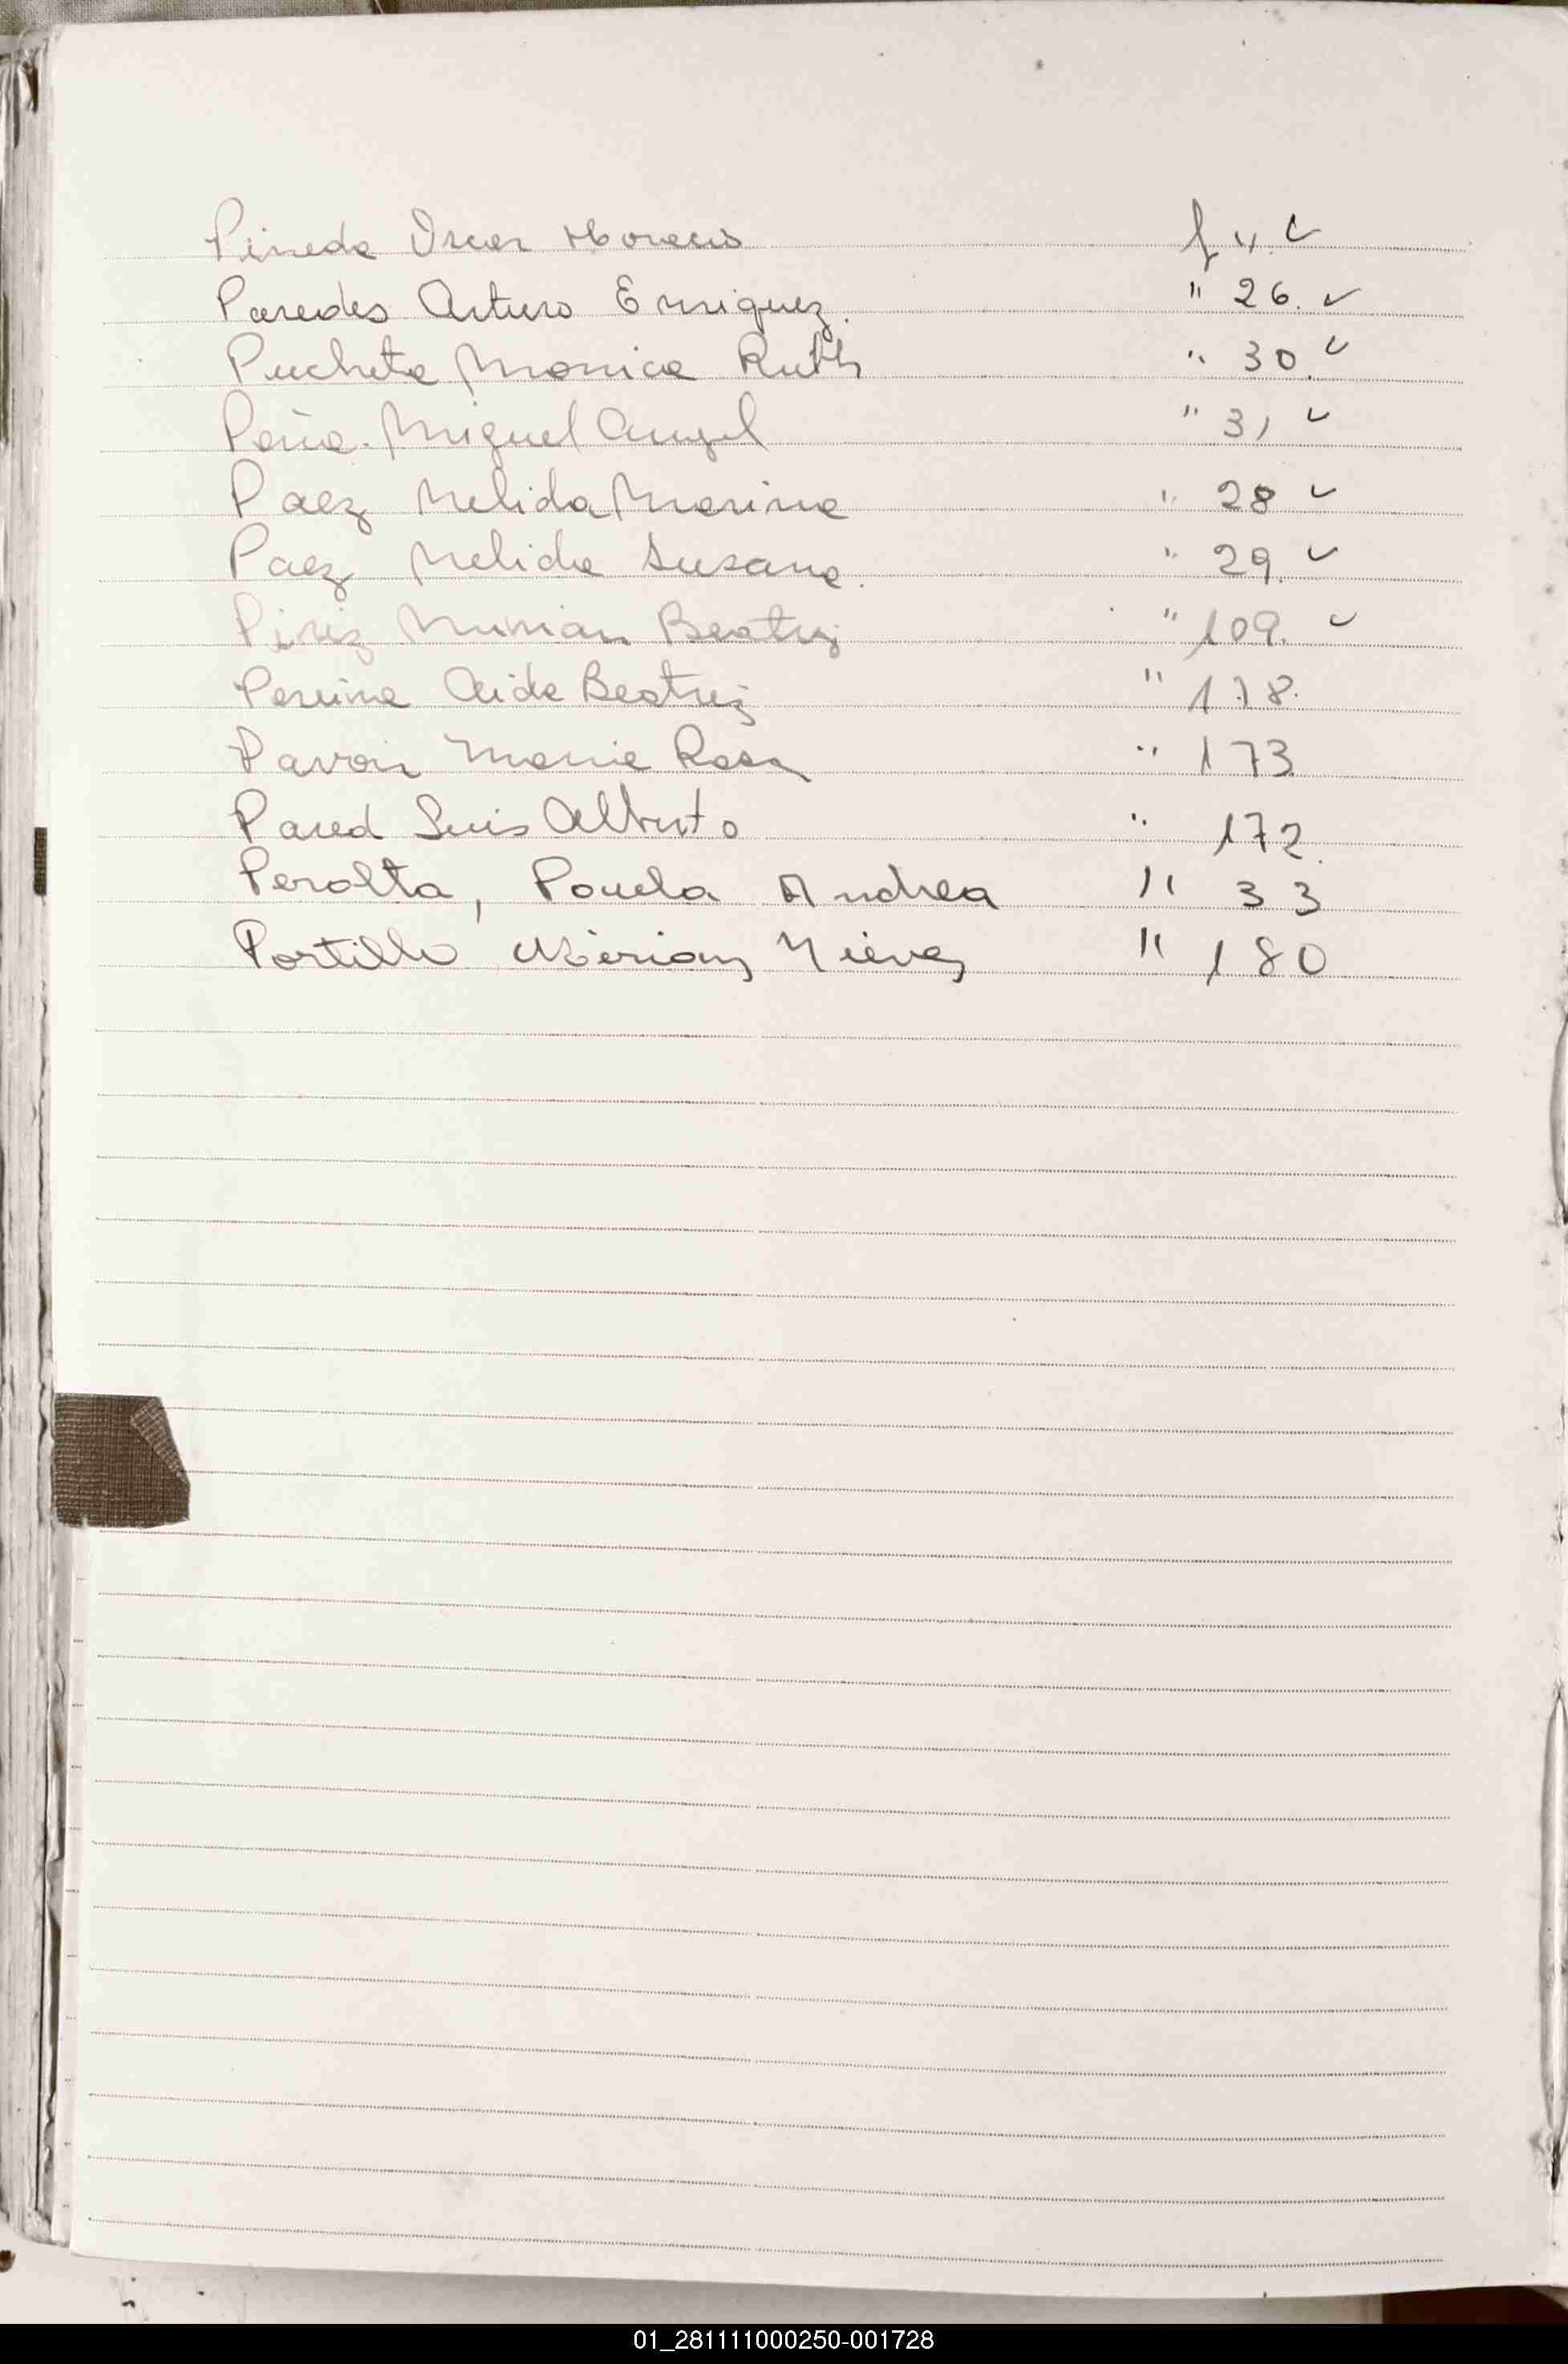 Pineda Oscar Horacio f 4. ✓
Paredes Arturo Enriquez. " 26. ✓
Puchete Monica Ruth " 30. ✓
Peña Miguel Angel " 31 ✓
Paez Nelida Marina " 28 ✓
Paez Nelida Susana. " 29. ✓
Piriz Mirian Beatriz " 109. ✓
Aida Beatriz " 178.
Pavon Maria Rosa " 173
Pared Luis Alberto " 172.
Peralta, Paula Andrea " 33
Portillo Mirian Nieves " 180
01_281111000250-001728